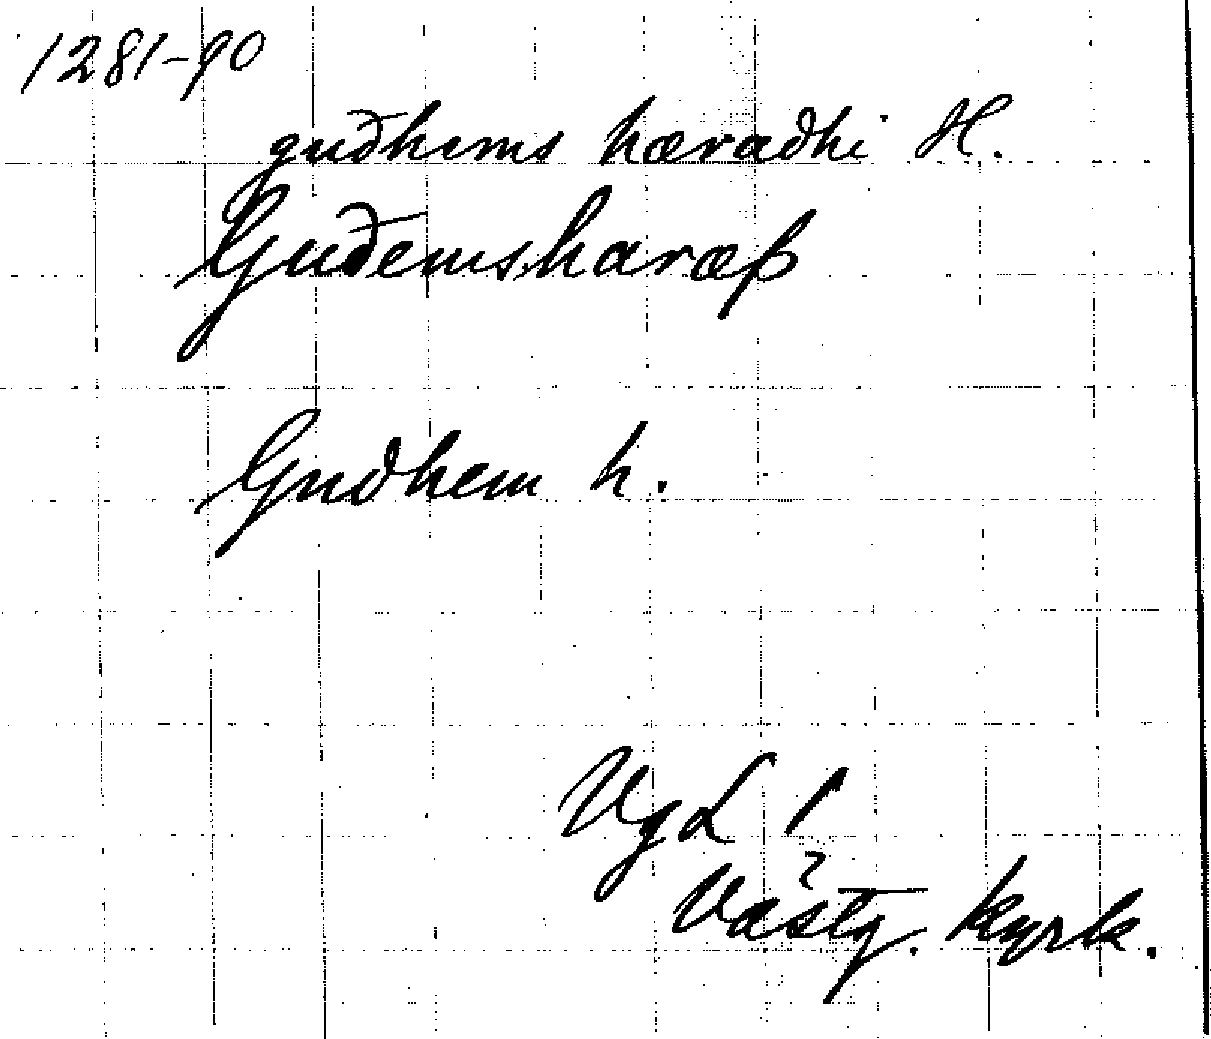 1281-90
guðhems hæraðhi H.
Guðemsharæþ
Guðhem h.
VgL 1
Västg. kyrk.